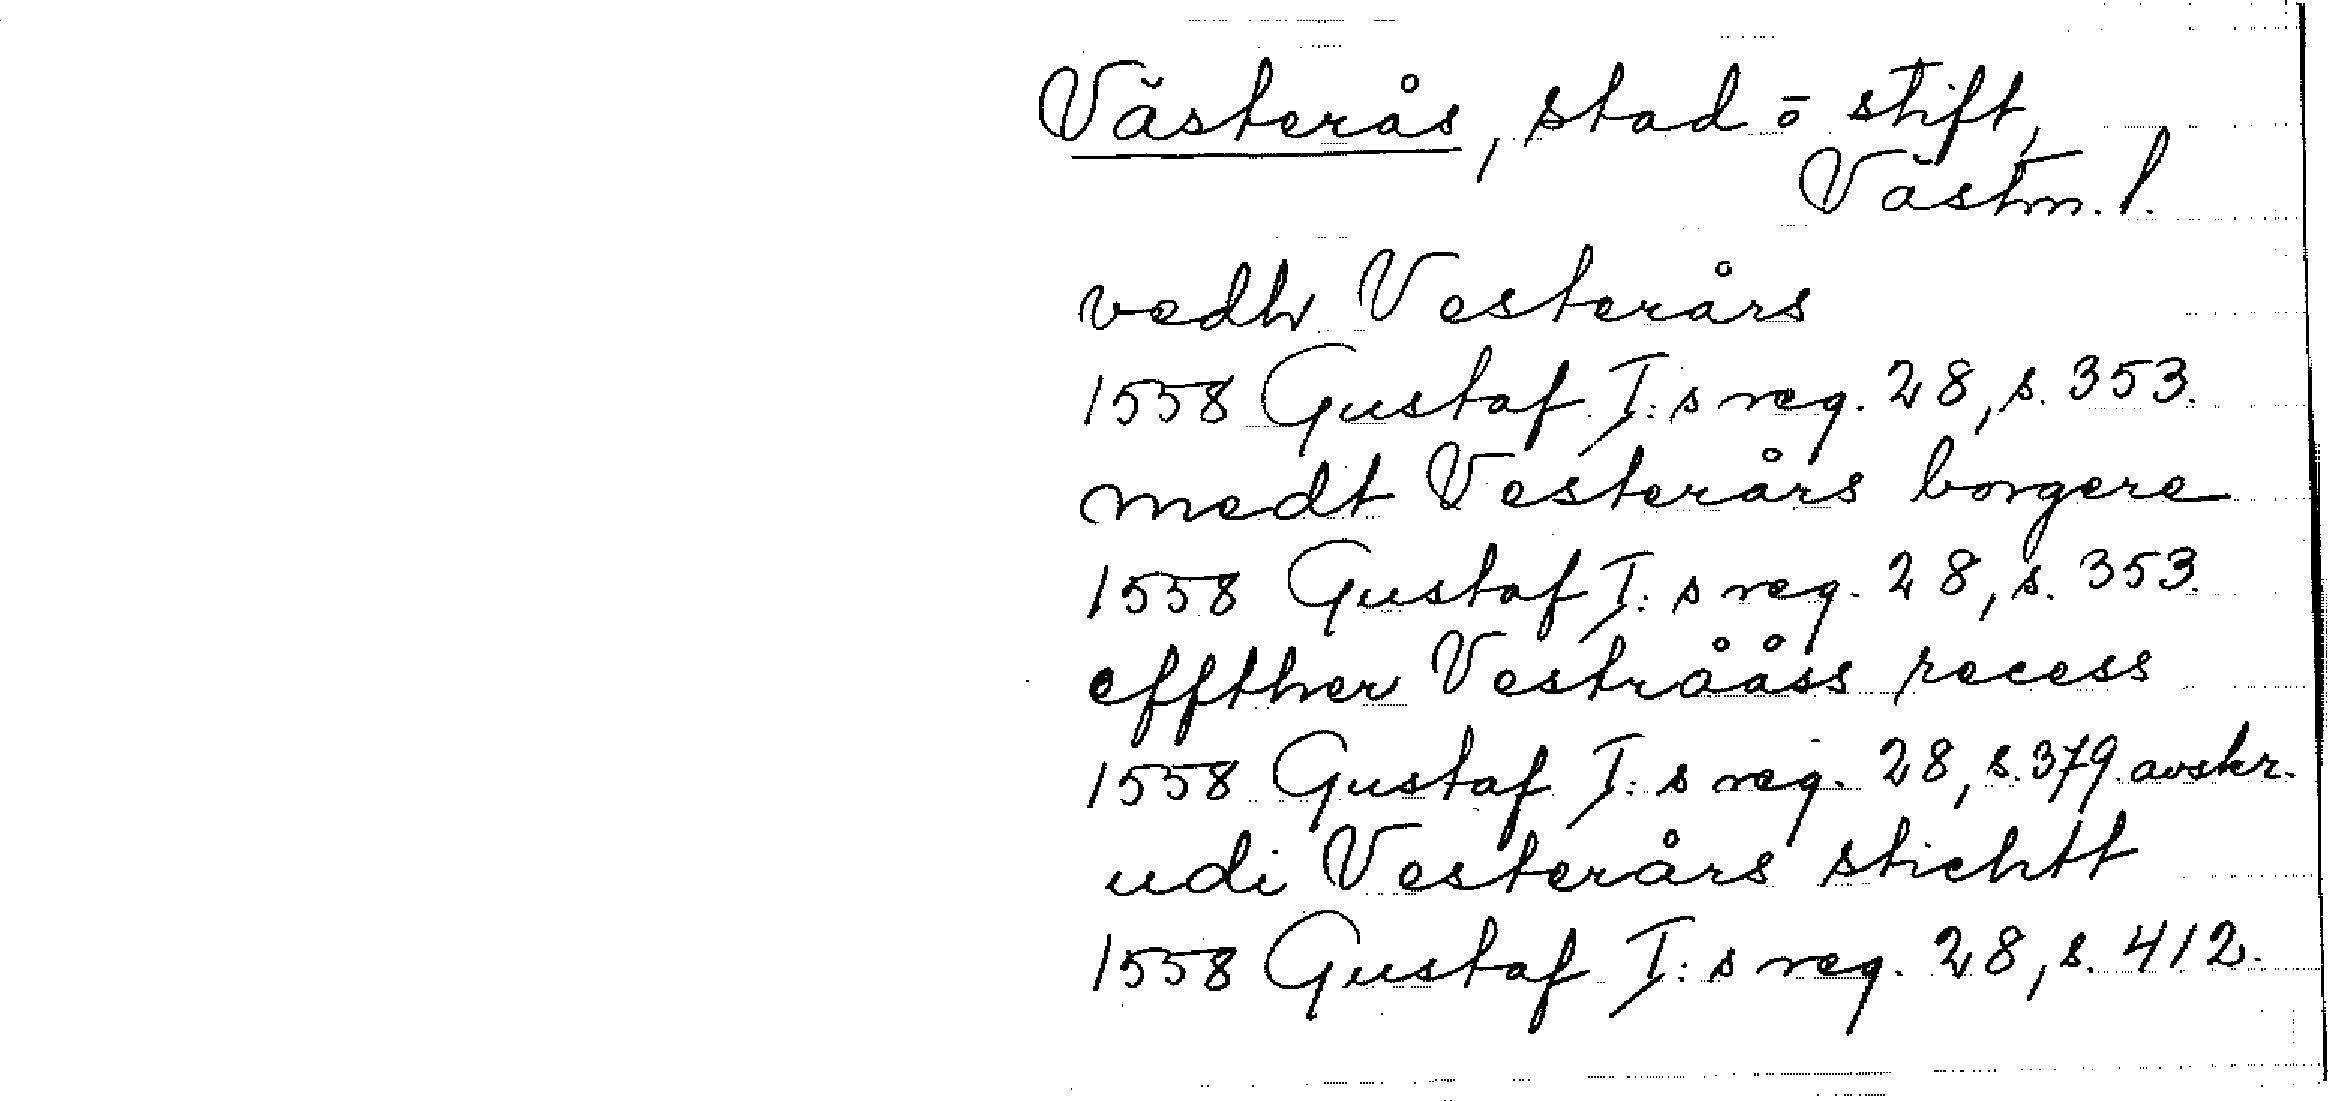 Västerås, stad ō stift,
Västm. l.
vedh Vesterårs
1558 Gustaf I:s reg. 28, s. 353.
medt Vesterårs borgere
1558 Gustaf I:s reg. 28, s. 353.
effther Vestrååss recess
1558 Gustaf I:s reg. 28, s. 379 avskr.
udi Vesterårs stichtt
1558 Gustaf I:s reg. 28, s. 412.